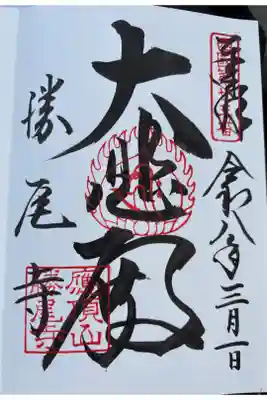 奉拝
令和八年三月一日
大悲殿
勝尾寺
應頂山
勝尾寺